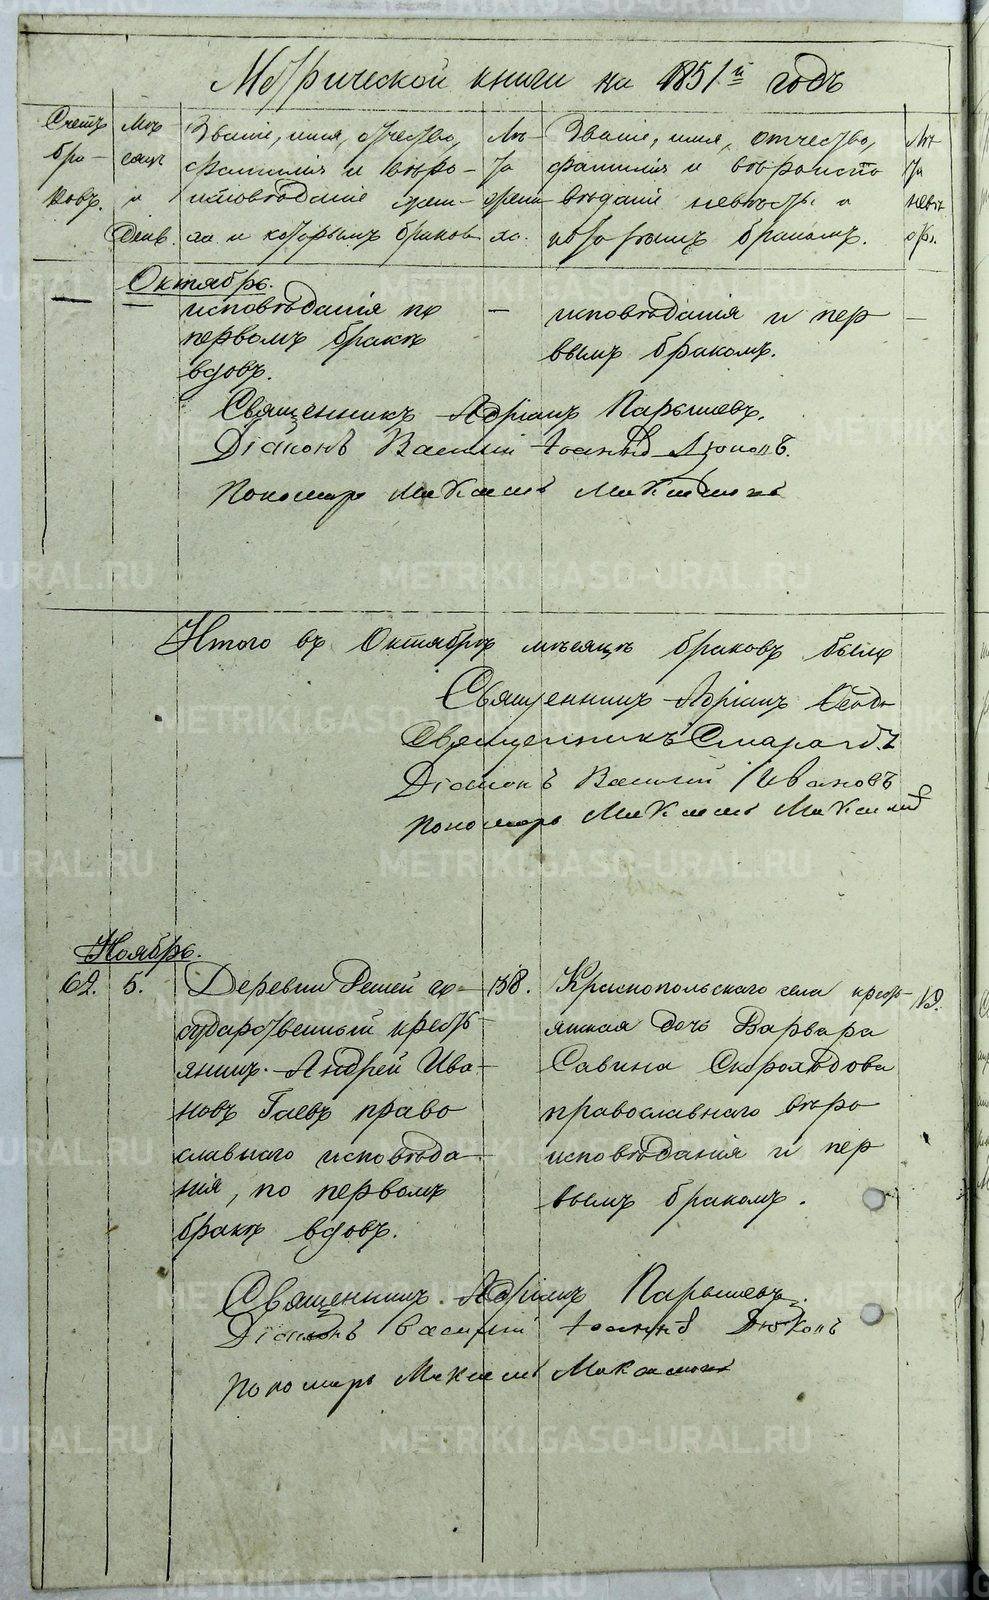 Метрической книги на 1851й годъ
Счетъ браковъ.
Мѣсяцъ и День.
Званіе, имя, отчество, фамилія и вѣроисповѣданіе жениха и которымъ бракомъ
Лѣта жениха.
Званіе, имя, отчество, фамилія и вѣроисповѣданіе невѣсты и которымъ бракомъ.
Лѣта невѣсты.
Октябрь.
исповѣданія по
первомъ бракѣ
вдовъ.
исповѣданія и пер
вымъ бракомъ.
Священникъ Адріанъ Парышевъ.
Діаконъ Василій
Пономарь Максимъ
Итого въ Октябрѣ мѣсяцѣ браковъ было
Священникъ Адріанъ
Священникъ Смарагдъ
Діаконъ Василій Ивановъ
Пономарь Максимъ
Ноябрь.
62. 5. Деревни го-
сударственный кресть-
янинъ Андрей Ива-
новъ Гаевъ право
славнаго исповѣда-
нія, по первомъ
бракѣ вдовъ.
38.
Краснопольскаго села кресть-
янская дочь Варвара
Савина Скороходова
православнаго вѣро
исповѣданія и пер
вымъ бракомъ.
19.
Священникъ Адріанъ Парышевъ.
Діаконъ Василій
Пономарь Максимъ
METRIKI.GASO-URAL.RU